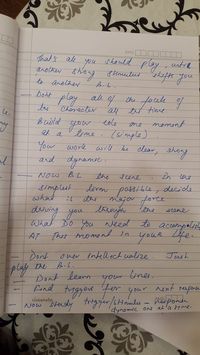 That's all you should play, until
another strong stimulus shifts you
to another B.L.
— Dont play all of the facets of
the character all the time.
Build your role one moment
at a time. (Single)
Your work will be clear, strong
and dynamic.
— NOW B.L the scene. In the
simplest term possible, decide
what is the major force
driving you through the scene
What DO You Need to accomplish
AT This moment in your life.
— Dont over Intellectualize. Just
play the B.L.
— Dont learn your lines.
— find trigger for your next response
Now Study trigger/stimulus - Respond
dynamic one at a time.